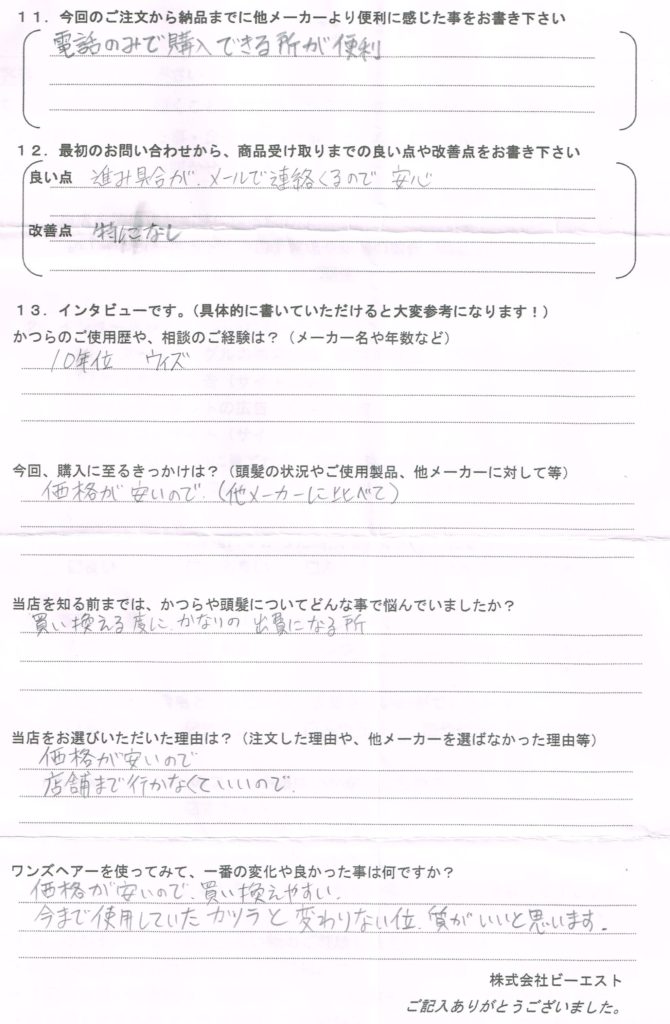 １１．今回のご注文から納品までに他メーカーより便利に感じた事をお書き下さい
電話のみで購入できる所が便利
１２．最初のお問い合わせから、商品受け取りまでの良い点や改善点をお書き下さい
良い点 進み具合が、メールで連絡くるので 安心
改善点 特になし
１３．インタビューです。（具体的に書いていただけると大変参考になります！）
かつらのご使用歴や、相談のご経験は？（メーカー名や年数など）
10年位 ウィズ
今回、購入に至るきっかけは？（頭髪の状況やご使用製品、他メーカーに対して等）
価格が安いので、（他メーカーに比べて）
当店を知る前までは、かつらや頭髪についてどんな事で悩んでいましたか？
買い換える度に、かなりの出費になる所
当店をお選びいただいた理由は？（注文した理由や、他メーカーを選ばなかった理由等）
価格が安いので
店舗まで行かなくていいので、
ワンズヘアーを使ってみて、一番の変化や良かった事は何ですか？
価格が安いので、買い換えやすい、
今まで使用していたカツラと変わりない位、質がいいと思います。
株式会社ビーエスト
ご記入ありがとうございました。